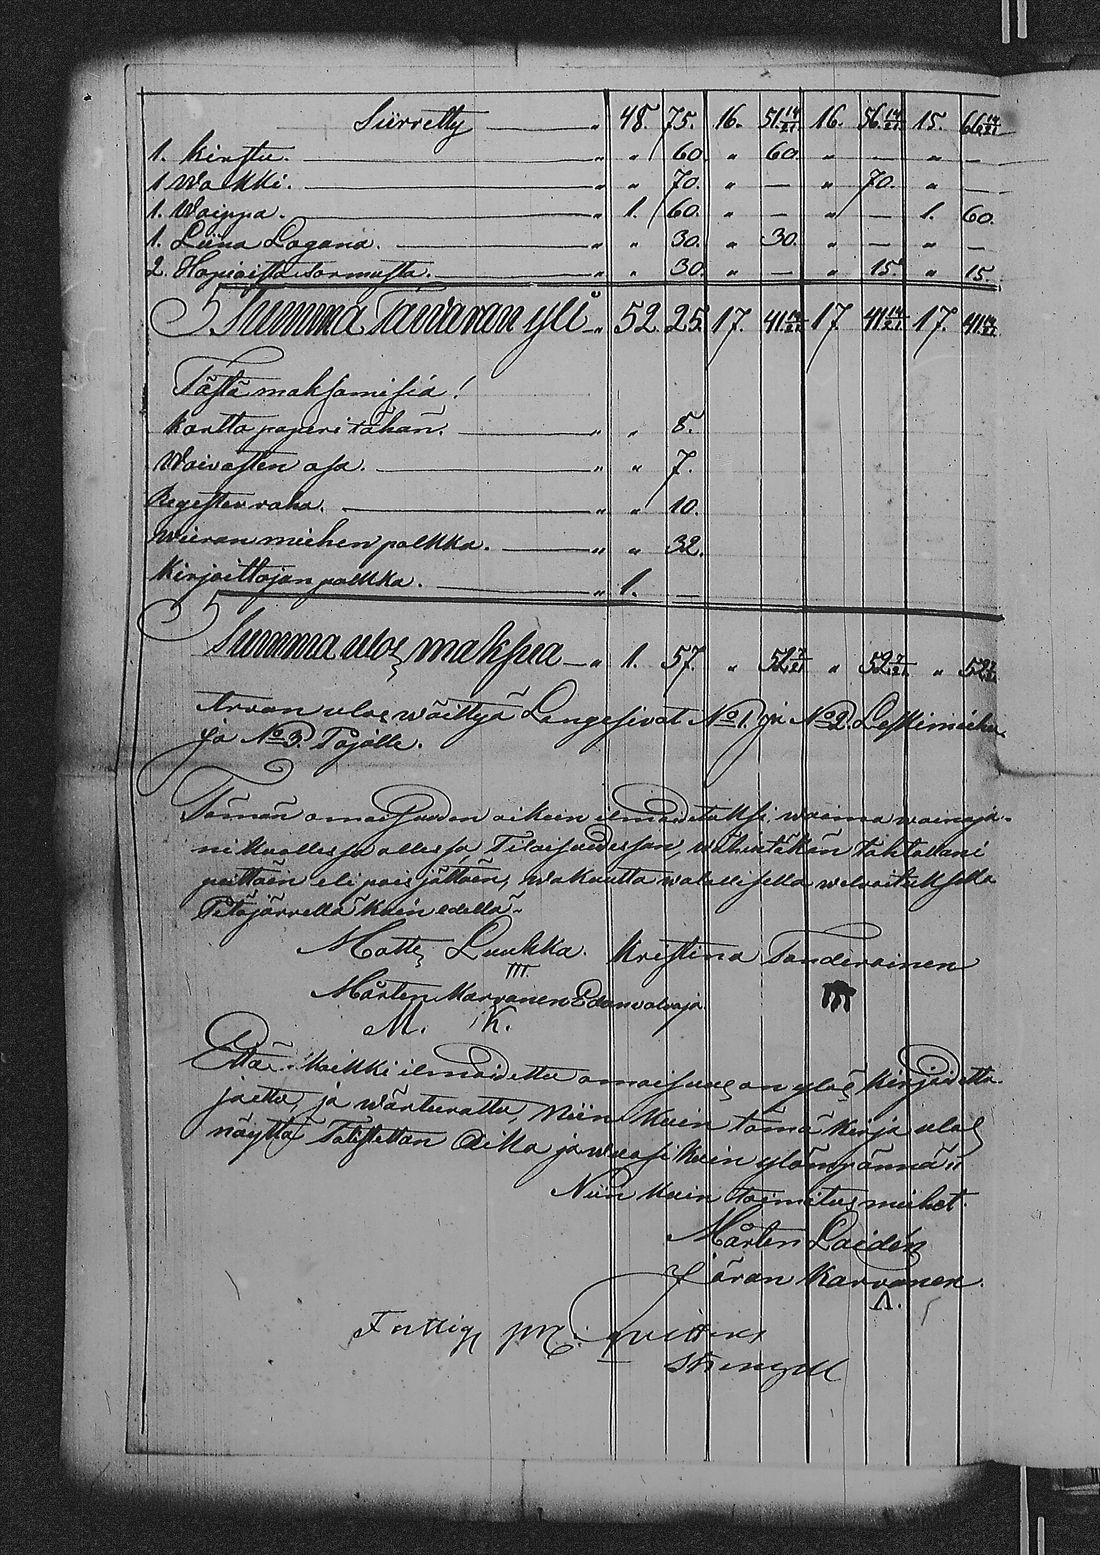 Siirretty — " 48. 75. 16. 51 14/21 16. 56 14/21 15. 66 14/21
1. Kirstu. — " " 60. " 60. " — " —
1 Wakki. — " " 70. " — " 70. " —
1. Waippa. — " 1. 60. " — " — 1. 60.
1. Liina Lagana. — " " 30. " 30. " — " —
2. Hopioista sormusta. — " " 30. " — " 15 " 15.
Summa Tawaran yli — " 52. 25. 17. 41 14/21 17. 41 14/21 17. 41 14/21
Tästä maksamisia!
Kartta paperi tähän. — " " 8.
Waivasten osa. — " " 7.
Regester raha. — " " 10.
Wieran miehen palkka. — " " 32.
Kirjoittajan palkka. — " 1. —
Summa ulos maksua — " 1. 57. " 52 7/21 " 52 7/21 " 52 7/21
Arvan ulos wäittyä Langesivat No 1. ja No 2. Leskimiehe
ja No 3. Pojalle.
Tämän omaisuuden oikein ilmoitetuksi, waimo wainaja
ni kuollessa ollessa Tilaisuudessan, wähintäkän tahtoani
peittäin eli pois jättäin, wakuutta walallisella welvoituksella
Pitäjärvellä kuin edellä.
Matts Luukka. Kristina Tanderoinen
III. III
Mårten Karvanen Edanvalvoja
M. K.
Että kaikki ilmoitettu omaisuus on ylös kirjoitettu
jaettu, ja wärteerattu, niin kuin tämä kirja ulos
näyttä Totistettan Aika ja wuosi kuin ylämpännä ii
Niin kuin toimitus miehet.
Mårten Laidén
Jöran Karvanen.
Λ.